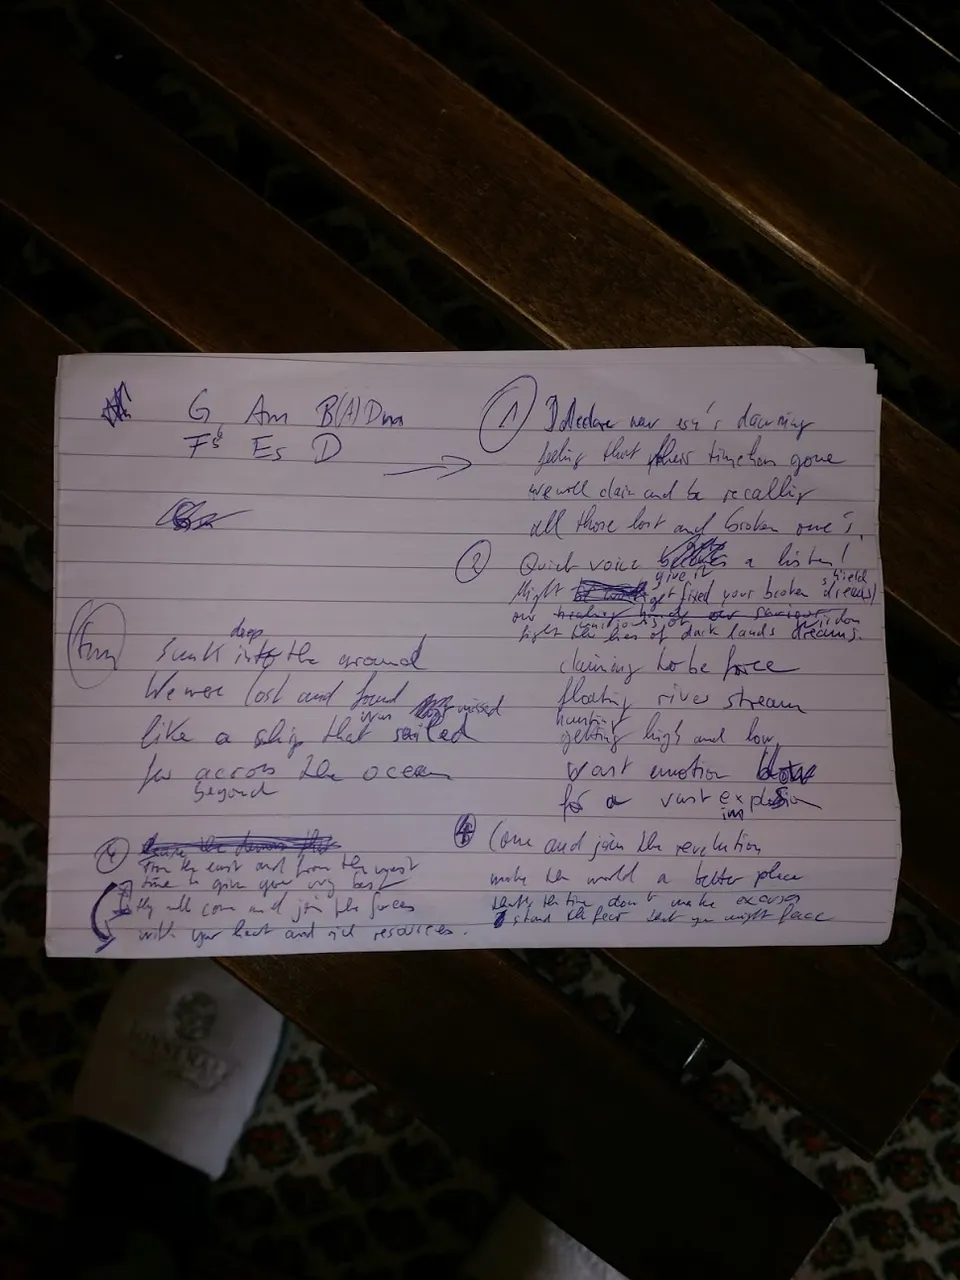 G Am B(A) Dm
Es D
1 I declare new era's dawning
feeling that their time has gone
we will claim and be recalling
all those lost and broken one's.
2 Quiet voice a listen!
give it shield
Might get fixed your broken dreams)
our
light the lies of dark lands dreams.
claiming to be force
floating river stream
hunting
getting high and low
Vast emotion
for a vast explosion
im
deep
Sunk into the ground
We were lost and found
was missed
like a ship that sailed
far across the ocean
beyond
4 from the east and from the west
time to give your very best
They will come and join the forces
with your heart and rich resources.
4 Come and join the revolution
make the world a better place
the time don't make excuses
stand the fear that you might face